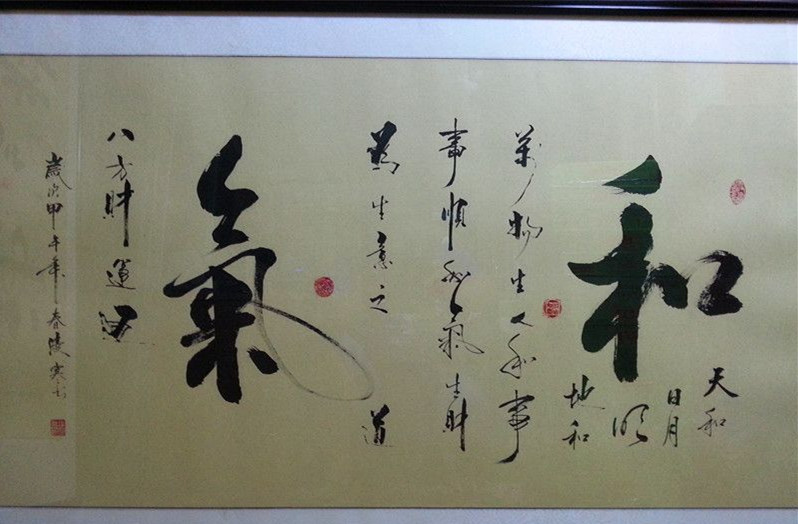 和
天和
日月
明
地和
萬物生人和事
事順和氣生財
為生意之
道
氣
八方財運
歲次甲午年春陵寒